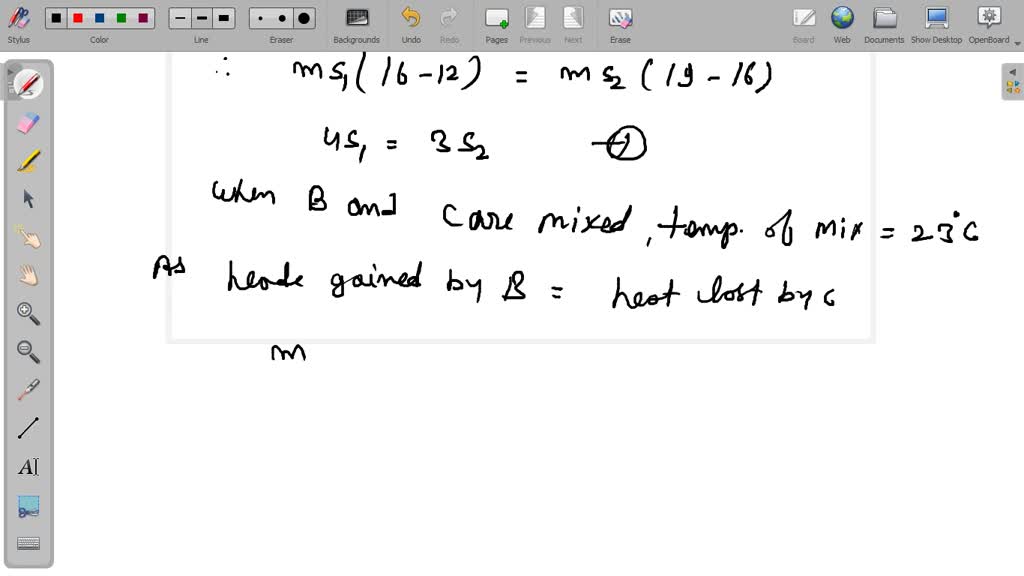 Stylus Color Line Eraser Backgrounds Undo Redo Pages Previous Next Erase Board Web Documents Show Desktop OpenBoard
∴ ms₁(16-12) = ms₂(19-16)
4s₁ = 3s₂ —①
when B and C are mixed, temp. of mix = 23°C
As heade gained by B = heat lost by c
m
AI